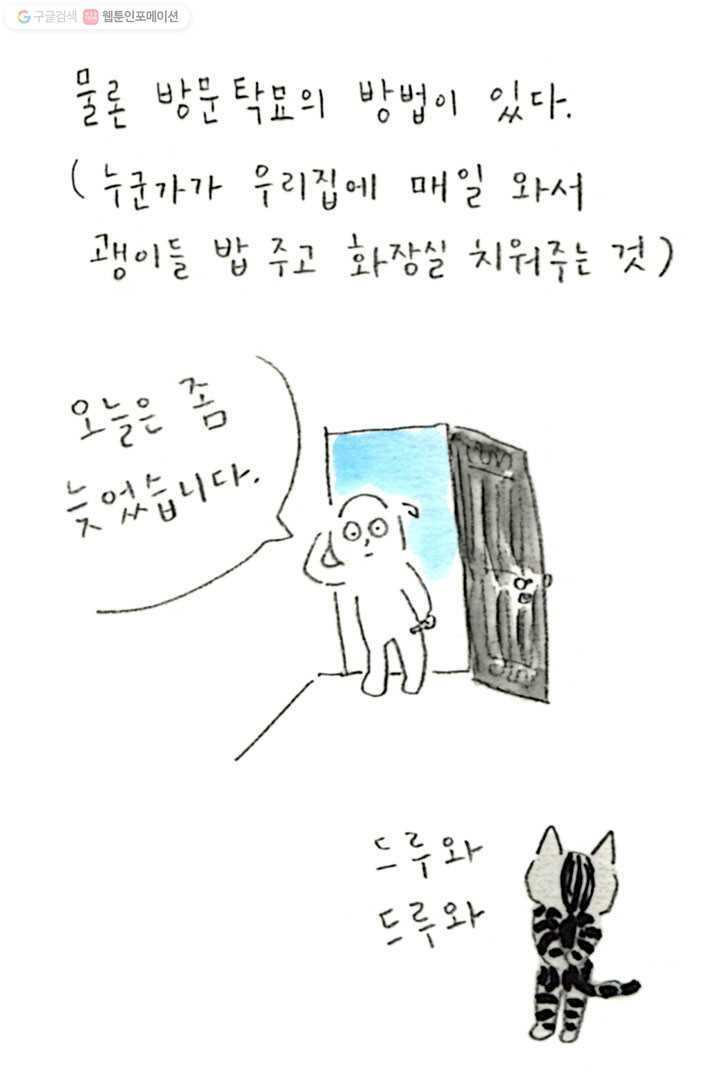 구글검색 웹툰인포메이션
물론 방문탁묘의 방법이 있다.
(누군가가 우리집에 매일 와서
괭이들 밥 주고 화장실 치워주는 것)
오늘은 좀
늦었습니다.
드루와
드루와